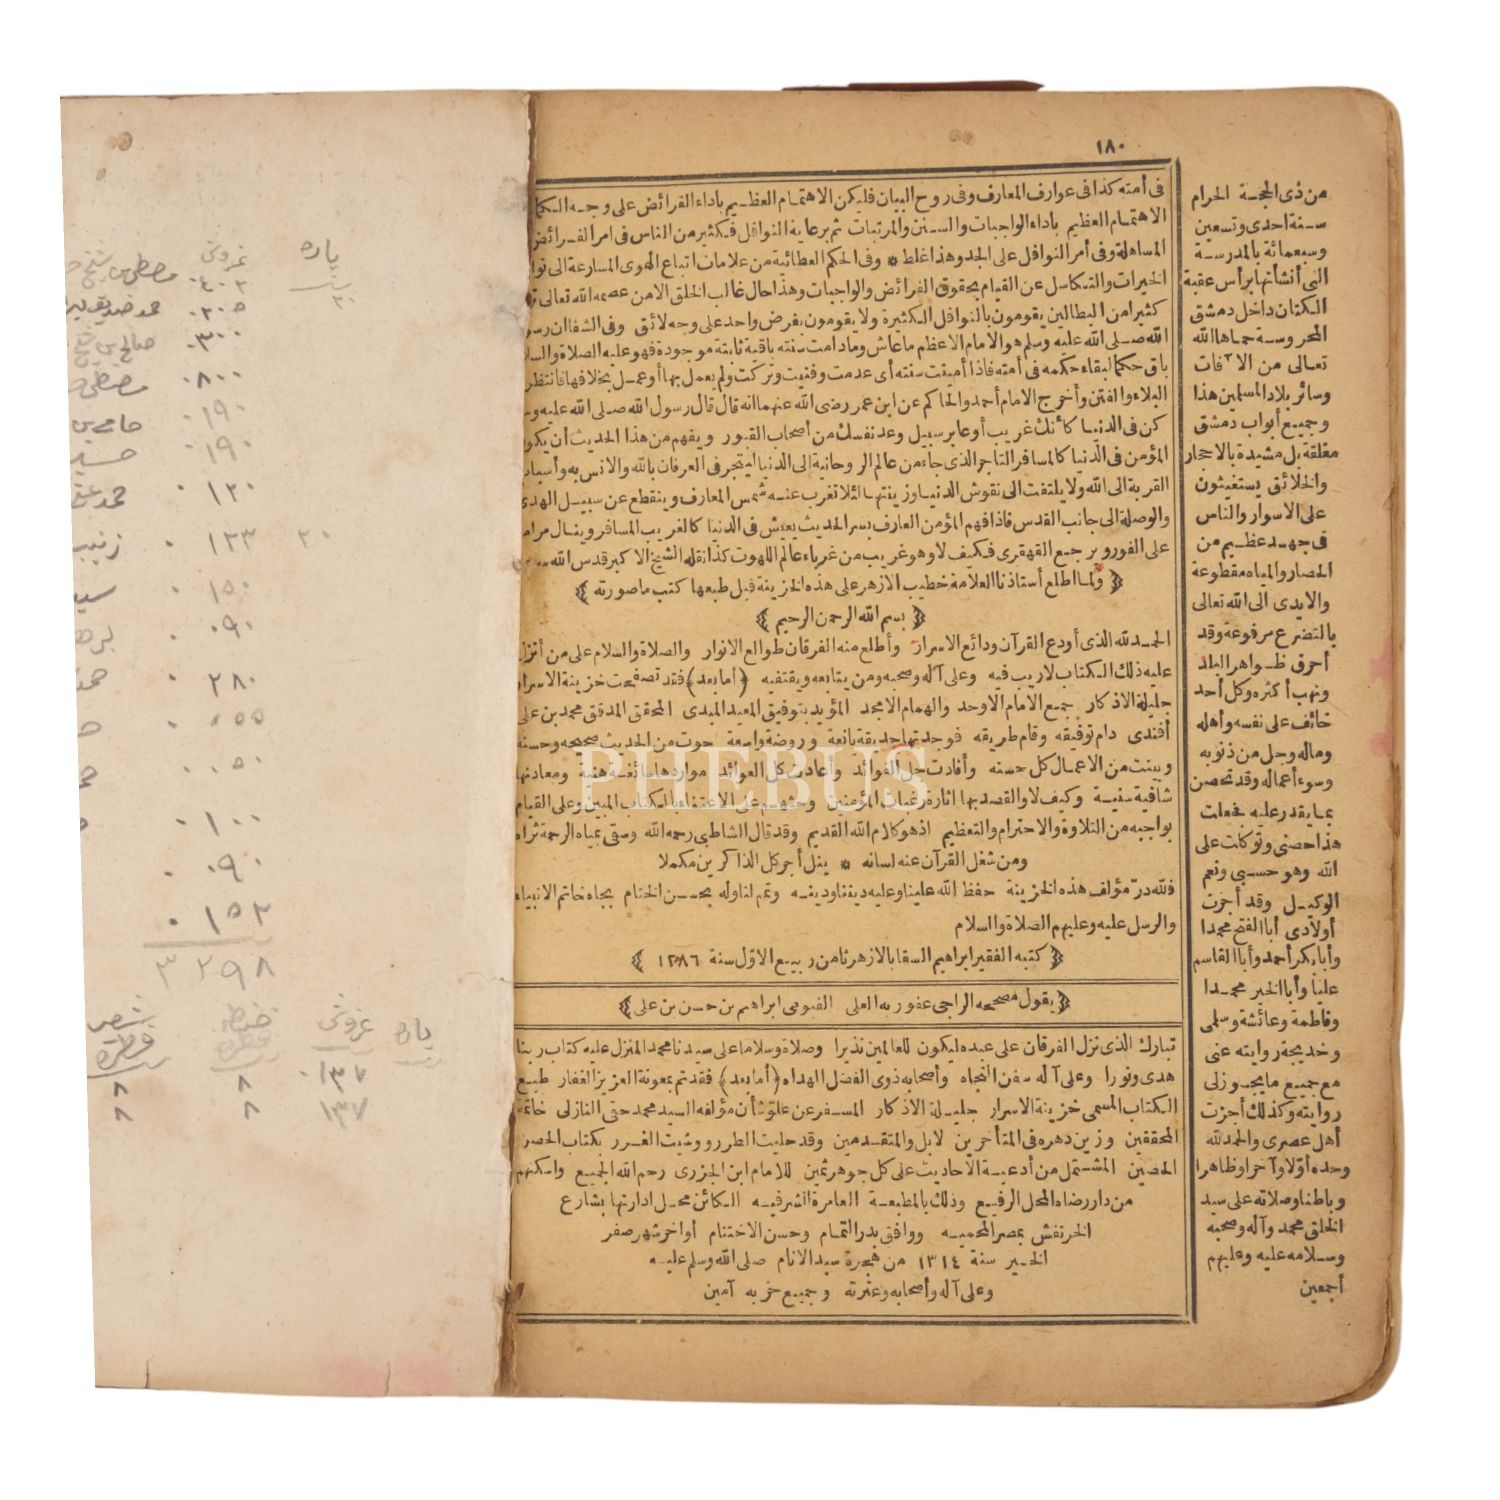 ١٨٠
فى أمته كذا فى عوارف المعارف وفى روح البيان فليكن الاهتمام العظيم باداء الفرائض على وجه الكمال
الاهتمام العظيم باداء الواجبات والسنن والمرتبات ثم برعاية النوافل فكثير من الناس فى امر الفرائض
المساهلة وفى أمر النوافل على الجد وهذا غلط * وفى الحكم العطائية من علامات اتباع الهوى المسارعة الى نوافل
الخيرات والتكاسل عن القيام بحقوق الفرائض والواجبات وهذا حال غالب الخلق الا من عصمه الله تعالى
كثيرا من البطالين يقومون بالنوافل الكثيرة ولا يقومون بفرض واحد على وجه لائق وفى الشفا ان رسول
الله صلى الله عليه وسلم هو الامام الاعظم ما عاش وما دامت سنته باقية ثابتة موجودة فهو عليه الصلاة والسلام
باق حكما لبقاء حكمه فى أمته فاذا أميتت سنته أى عدمت وفنيت وتركت ولم يعمل بها أو عمل بخلافها فانتظر
البلاء والفتن وأخرج الامام أحمد والحاكم عن ابن عمر رضى الله عنهما انه قال قال رسول الله صلى الله عليه
كن فى الدنيا كأنك غريب أو عابر سبيل وعد نفسك من أصحاب القبور ويفهم من هذا الحديث أن يكون
المؤمن فى الدنيا كالمسافر التاجر الذى جاء من عالم الروحانية الى الدنيا ليتجر فى العرفان بالله والانس به وأسباب
القربة الى الله ولا يلتفت الى نقوش الدنيا وزينتها لئلا تغرب عنه شمس المعارف وينقطع عن سبيل الهدى
والوصلة الى جانب القدس فاذا فهم المؤمن العارف بسر الحديث يعيش فى الدنيا كالغريب المسافر وينال مرامه
على الفور ويرجع القهقرى فكيف لا وهو غريب من غرباء عالم اللاهوت كذا نقله الشيخ الاكبر قدس الله
﴿ ولما اطلع أستاذنا العلامة خطيب الازهر على هذه الخزينة قبل طبعها كتب ما صورته ﴾
﴿ بسم الله الرحمن الرحيم ﴾
الحمد لله الذى أودع القرآن ودائع الاسرار وأطلع منه الفرقان طوالع الانوار والصلاة والسلام على من أنزل
عليه ذلك الكتاب لا ريب فيه وعلى آله وصحبه ومن يتابعه ويقتفيه ﴿ أما بعد ﴾ فقد تصفحت خزينة الاسرار
جليلة الاذكار جمع الامام الاوحد والهمام الامجد المؤيد بتوفيق المعيد المبدى المحقق المدقق محمد بن على
أفندى دام توفيقه وقام طريقه فوجدتها حديقة يانعة وروضة واسعة حوت من الحديث صحيحه وحسنه
وبينت من الاعمال كل حسنه وأفادت جل الفوائد وأعادت كل العوائد مواردها سائغة هنية ومعادنها
شافية سنية وكيف لا والقصد بها اثارة رغبات المؤمنين وحثهم على الاعتناء بالكتاب المبين وعلى القيام
بواجبه من التلاوة والاحترام والتعظيم اذ هو كلام الله القديم وقد قال الشاطبى رحمه الله وسقى بمياه الرحمة ثراه
ومن شغل القرآن عنه لسانه * ينل أجر كل الذاكرين مكملا
فلله در مؤلف هذه الخزينة حفظ الله علينا وعليه ديننا ودينه وتمم لنا وله بحسن الختام بجاه خاتم الانبياء
والرسل عليه وعليهم الصلاة والسلام
﴿ كتبه الفقير ابراهيم السقا بالازهر ثامن ربيع الاول سنة ١٢٨٦ ﴾
﴿ يقول مصححه الراجى عفو ربه العلى الفيومى ابراهيم بن حسن بن على ﴾
تبارك الذى نزل الفرقان على عبده ليكون للعالمين نذيرا وصلاة وسلاما على سيدنا محمد المنزل عليه كتاب ربنا
هدى ونورا وعلى آله سفن النجاه وأصحابه ذوى الفضل الهداه ﴿ أما بعد ﴾ فقد تم بمعونة العزيز الغفار طبع
الكتاب المسمى خزينة الاسرار جليلة الاذكار المسفر عن علو شأن مؤلفه السيد محمد حقى النازلى خاتمة
المحققين وزين دهره فى المتأخرين لا بل والمتقدمين وقد حليت الطرر ووشيت الغرر بكتاب الحصن
الحصين المشتمل من أدعية الاحاديث على كل جوهر ثمين للامام ابن الجزرى رحم الله الجميع واسكنهم
من دار رضاه المحل الرفيع وذلك بالمطبعة العامرة الشرفيه الكائن محل ادارتها بشارع
الخرنفش بمصر المحميه ووافق بدر التمام وحسن الاختتام أواخر شهر صفر
الخير سنة ١٣١٤ من هجرة سيد الانام صلى الله وسلم عليه
وعلى آله وأصحابه وعترته وجميع حزبه آمين
من ذى الحجة الحرام
سنة احدى وتسعين
وسبعمائة بالمدرسة
التى أنشأتها برأس عقبة
الكتان داخل دمشق
المحروسة حماها الله
تعالى من الآفات
وسائر بلاد المسلمين هذا
وجميع أبواب دمشق
مغلقة بل مشيدة بالاحجار
والخلائق يستغيثون
على الاسوار والناس
فى جهد عظيم من
الحصار والمياه مقطوعة
والايدى الى الله تعالى
بالتضرع مرفوعة وقد
أحرق ظواهر البلد
ونهب أكثره وكل أحد
خائف على نفسه وأهله
وماله وجل من ذنوبه
وسوء أعماله وقد تحصن
بما يقدر عليه فجعلت
هذا حصنى وتوكلت على
الله وهو حسبى ونعم
الوكيل وقد أجزت
أولادى أبا الفتح محمدا
وأبا بكر أحمد وأبا القاسم
عليا وأبا الخير محمدا
وفاطمة وعائشة وسلمى
وخديجة روايته عنى
مع جميع ما يجوز لى
روايته وكذلك أجزت
أهل عصرى والحمد لله
وحده أولا وآخرا وظاهرا
وباطنا وصلاته على سيد
الخلق محمد وآله وصحبه
وسلامه عليه وعليهم
أجمعين
PHEBUS
پاره غروش
٢٠ ٤٠٢ مصطفى بن شيخ
٢٠٥ محمد صديق
٣٠٠ صالح بن شيخ
٨٠٠ مصطفى
١٩٠
١٩٠
١٢٠ محمد
٢٠ ١٢٣ زينب
١٥٠
٠٩٠
٢٨٠
٠٥٥
٠٥٠
١٠٠
٠٩٠
١٥٢
٣٢٩٨
پاره غروش حنطه شعير
١٣٧ ٨ ٨
١٣٧ ٨ ٨